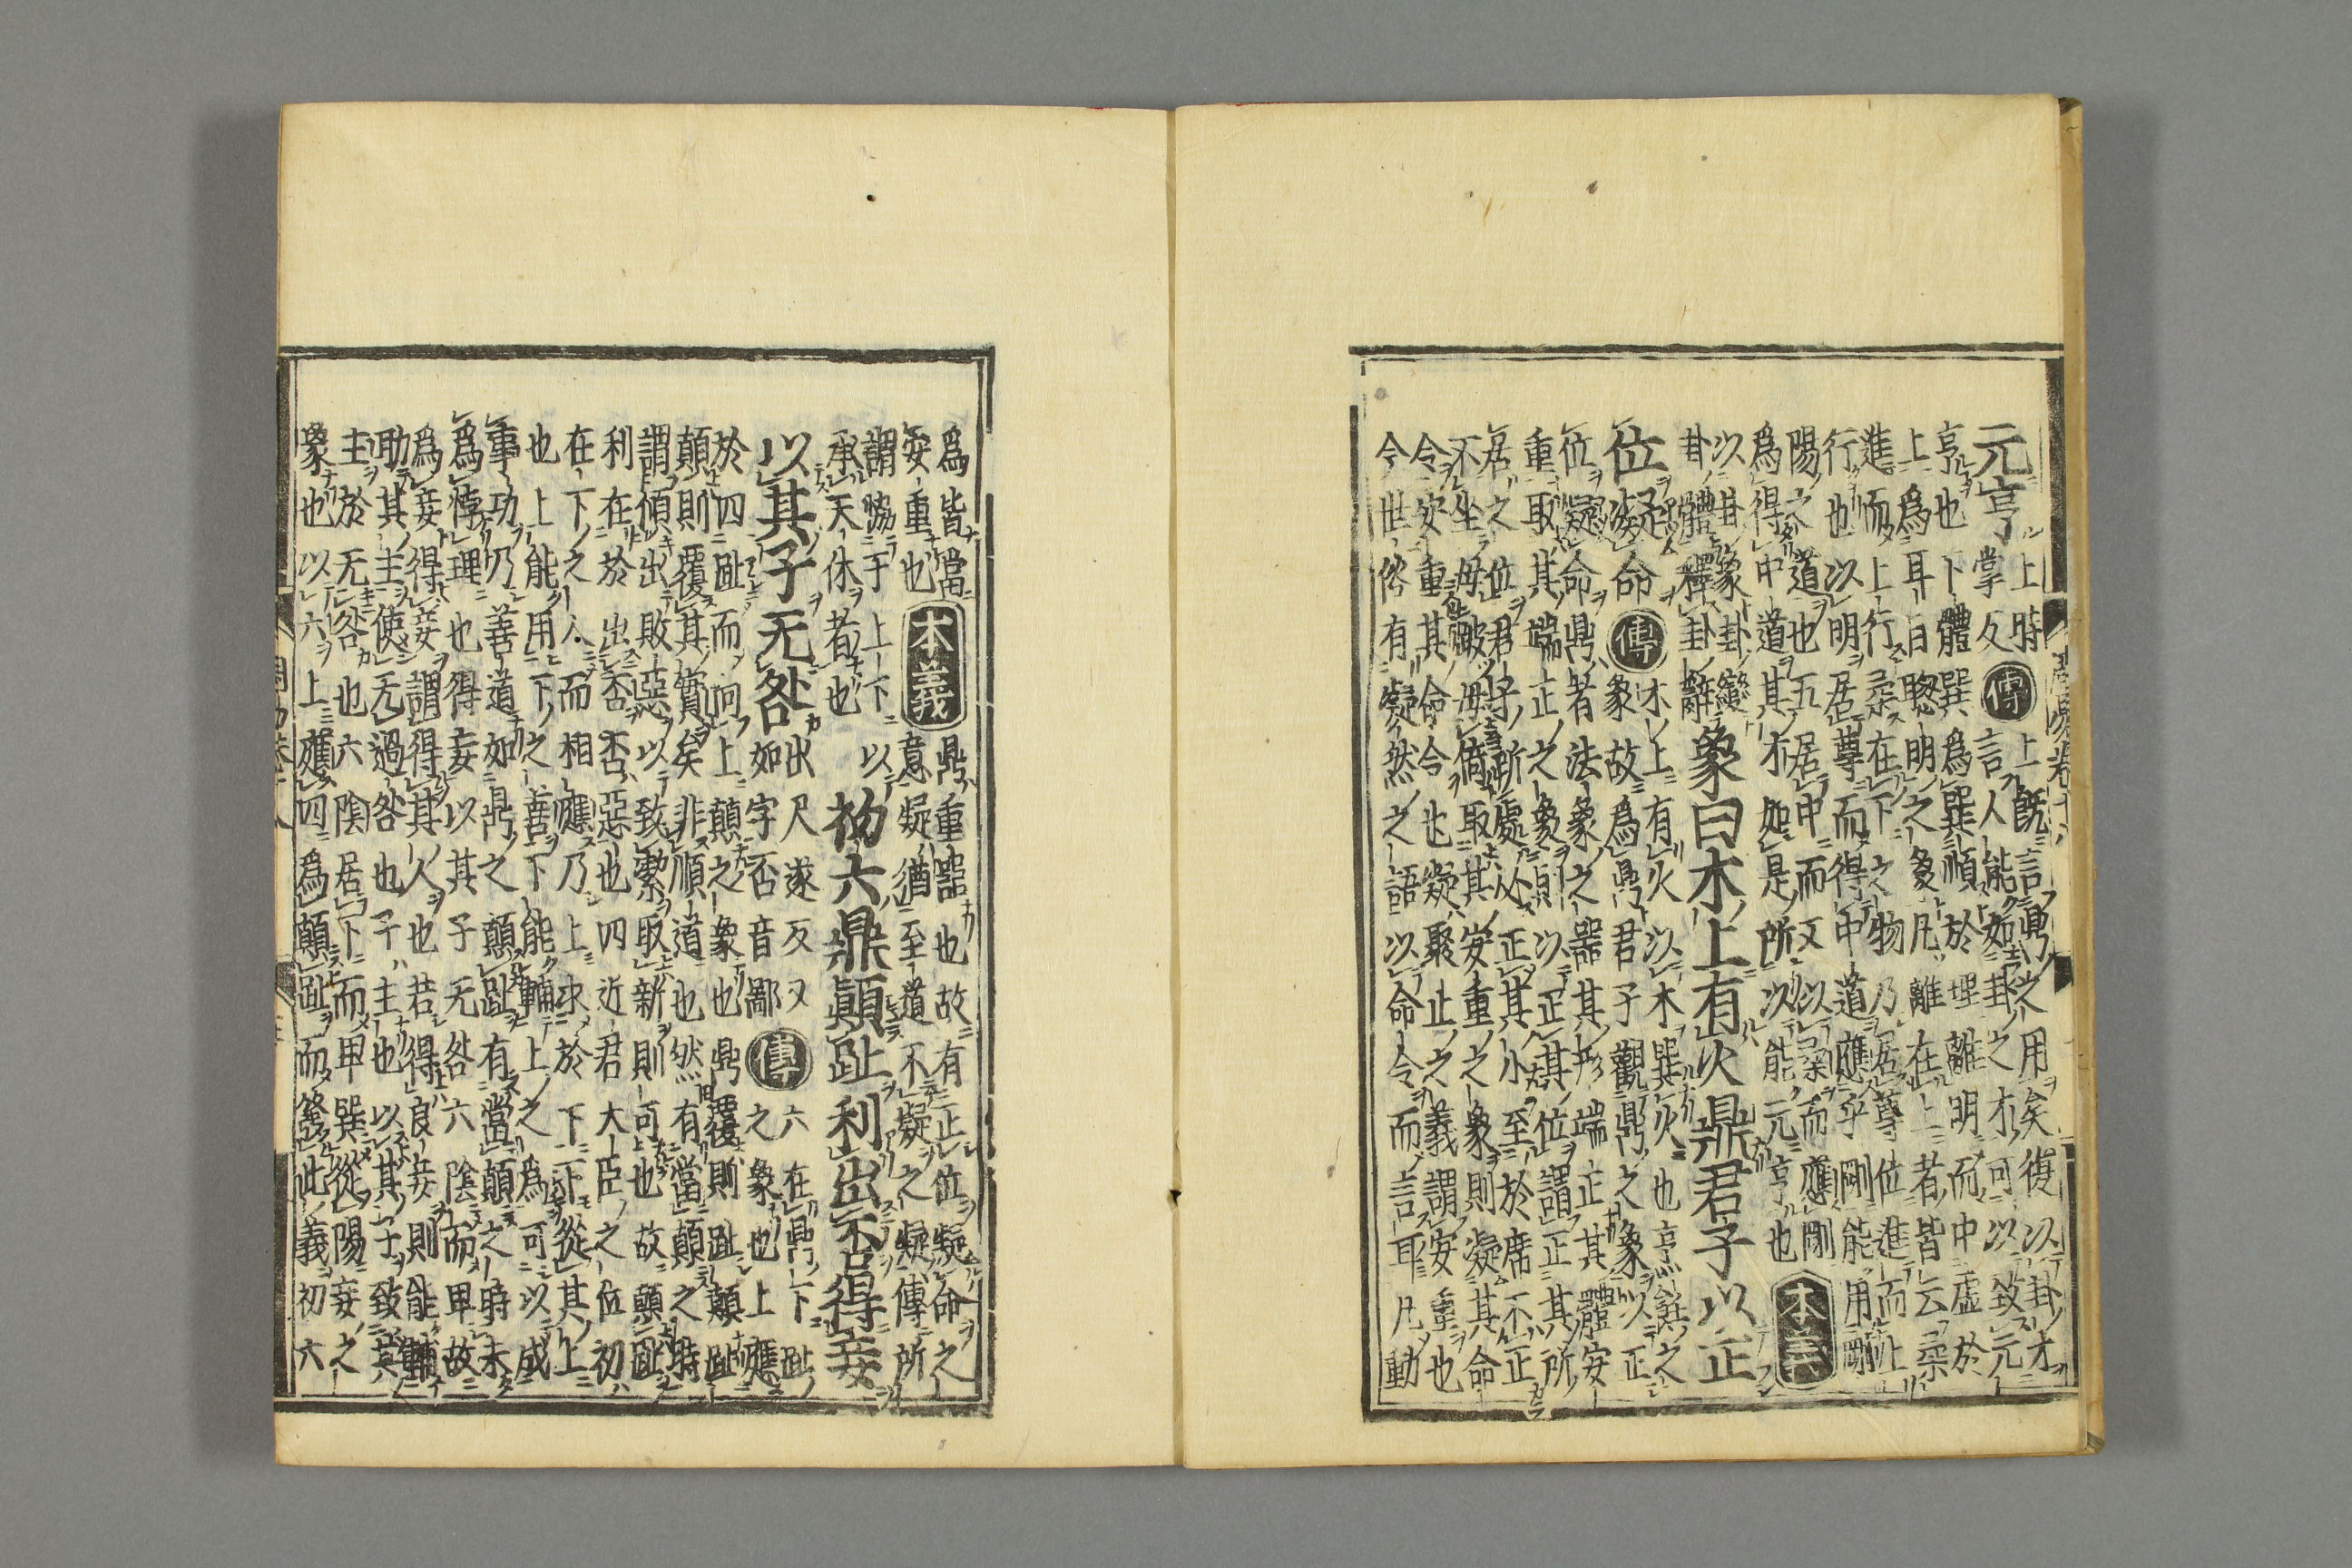 元亨
上時
掌反
傳
上既言鼎之用矣復以卦才
言人能如卦之才可以致元
亨也下體巽爲巽順於理離明而中虛於
上爲耳目聰明之象凡離在上者皆云柔
進而上行柔在下之物乃居尊位進而上
行也以明居尊而得中道應乎剛能用剛
陽之道也五居中而又以柔而應剛
爲得中道其才如是所以能元亨也
本義
以卦象卦變
卦體釋卦辭
象曰木上有火鼎君子以正
位凝命
傳
木上有火以木巽火也烹飪之
象故爲鼎君子觀鼎之象以正
位凝命鼎者法象之器其形端正其體安
重取其端正之象則以正其位謂正其所
居之位君子所處必正其小至於席不正
不坐毋跛毋倚取其安重之象則凝其命
令安重其命令也凝聚止之義謂安重也
今世俗有凝然之語以命令而言耳凡動
爲皆當
安重也
本義
鼎重器也故有正位凝命之
意凝猶至道不凝之凝傳所
謂協于上下以
承天休者也
初六鼎顚趾利出否得妾
以其子无咎
出尺遂反又
如字否音鄙
傳
六在鼎下趾
之象也上應
於四趾而向上顚之象也鼎覆則趾顚趾
顚則覆其實矣非順道也然有當顚之時
謂傾出敗惡以致潔取新則可也故顚趾
利在於出否否惡也四近君大臣之位初
在下之人而相應乃上求於下下從其上
也上能用下之善下能輔上之爲可以成
事功乃善道如鼎之顚趾有當顚之時未
爲悖理也得妾以其子无咎六陰而卑故
爲妾得妾謂得其人也若得良妾則能輔
助其主使无過咎也子主也以其子致其
主於无咎也六陰居下而卑巽從陽妾之
象也以六上應四爲顚趾而發此義初六